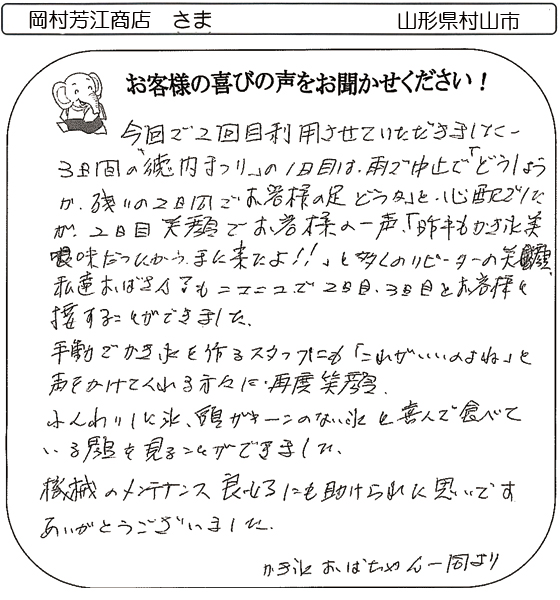 岡村芳江商店　さま
山形県村山市
お客様の喜びの声をお聞かせください！
今回で2回目利用させていただきました〜
3日間の「徳内まつり」の1日目は、雨で中止で「どうしよう
か、残りの2日間でお客様の足どうか」と、心配でした
が、2日目笑顔でお客様の一声、「昨年もかき氷美
味だったから、また来たよ！！」と多くのリピーターの笑顔
私達おばさん？もニコニコで2日目、3日目とお客様と
接することができました。
手動でかき氷を作るスタッフにも「これがいいのよね」と
声をかけてくれる方々に再度笑顔。
ふんわりした氷、頭がキーンのない氷と喜んで食べて
いる顔を見ることができました。
機械のメンテナンス良せるにも助けられた思いです
ありがとうございました。
かき氷おばちゃん一同より